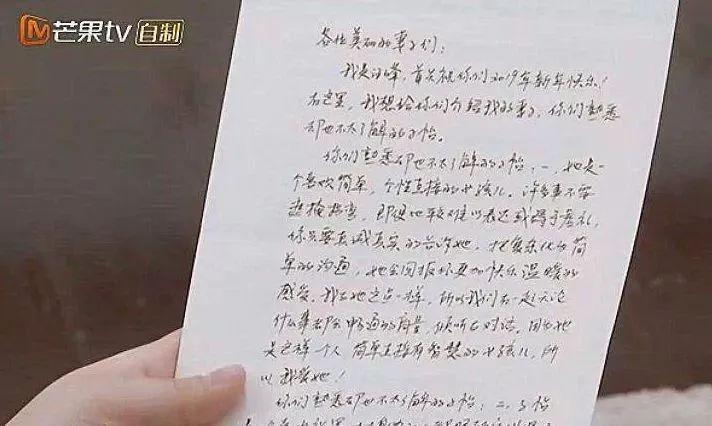 芒果tv 自制
各位美丽的妻子们：
我是汪峰，首先祝你们2019年新年快乐！
在这里，我想给你们介绍我的妻子，你们熟悉
却也不太了解的子怡。
你们熟悉却也不太了解的子怡：一，她是一
个喜欢简单，个性直接的女孩儿。许多事不要
遮掩，即便比较难以表达或碍于
你只要真诚真实的告诉她，把复杂化为简
单的沟通，她会回报你更加快乐温暖的
感受。我在她这点一样，所以我们在一起无论
什么事都会畅通的商量，倾听与对话，因为她
是这样一个人 简单直接有智慧的女孩儿，所
以我爱她！
你们熟悉却也不太了解的子怡：二，子怡